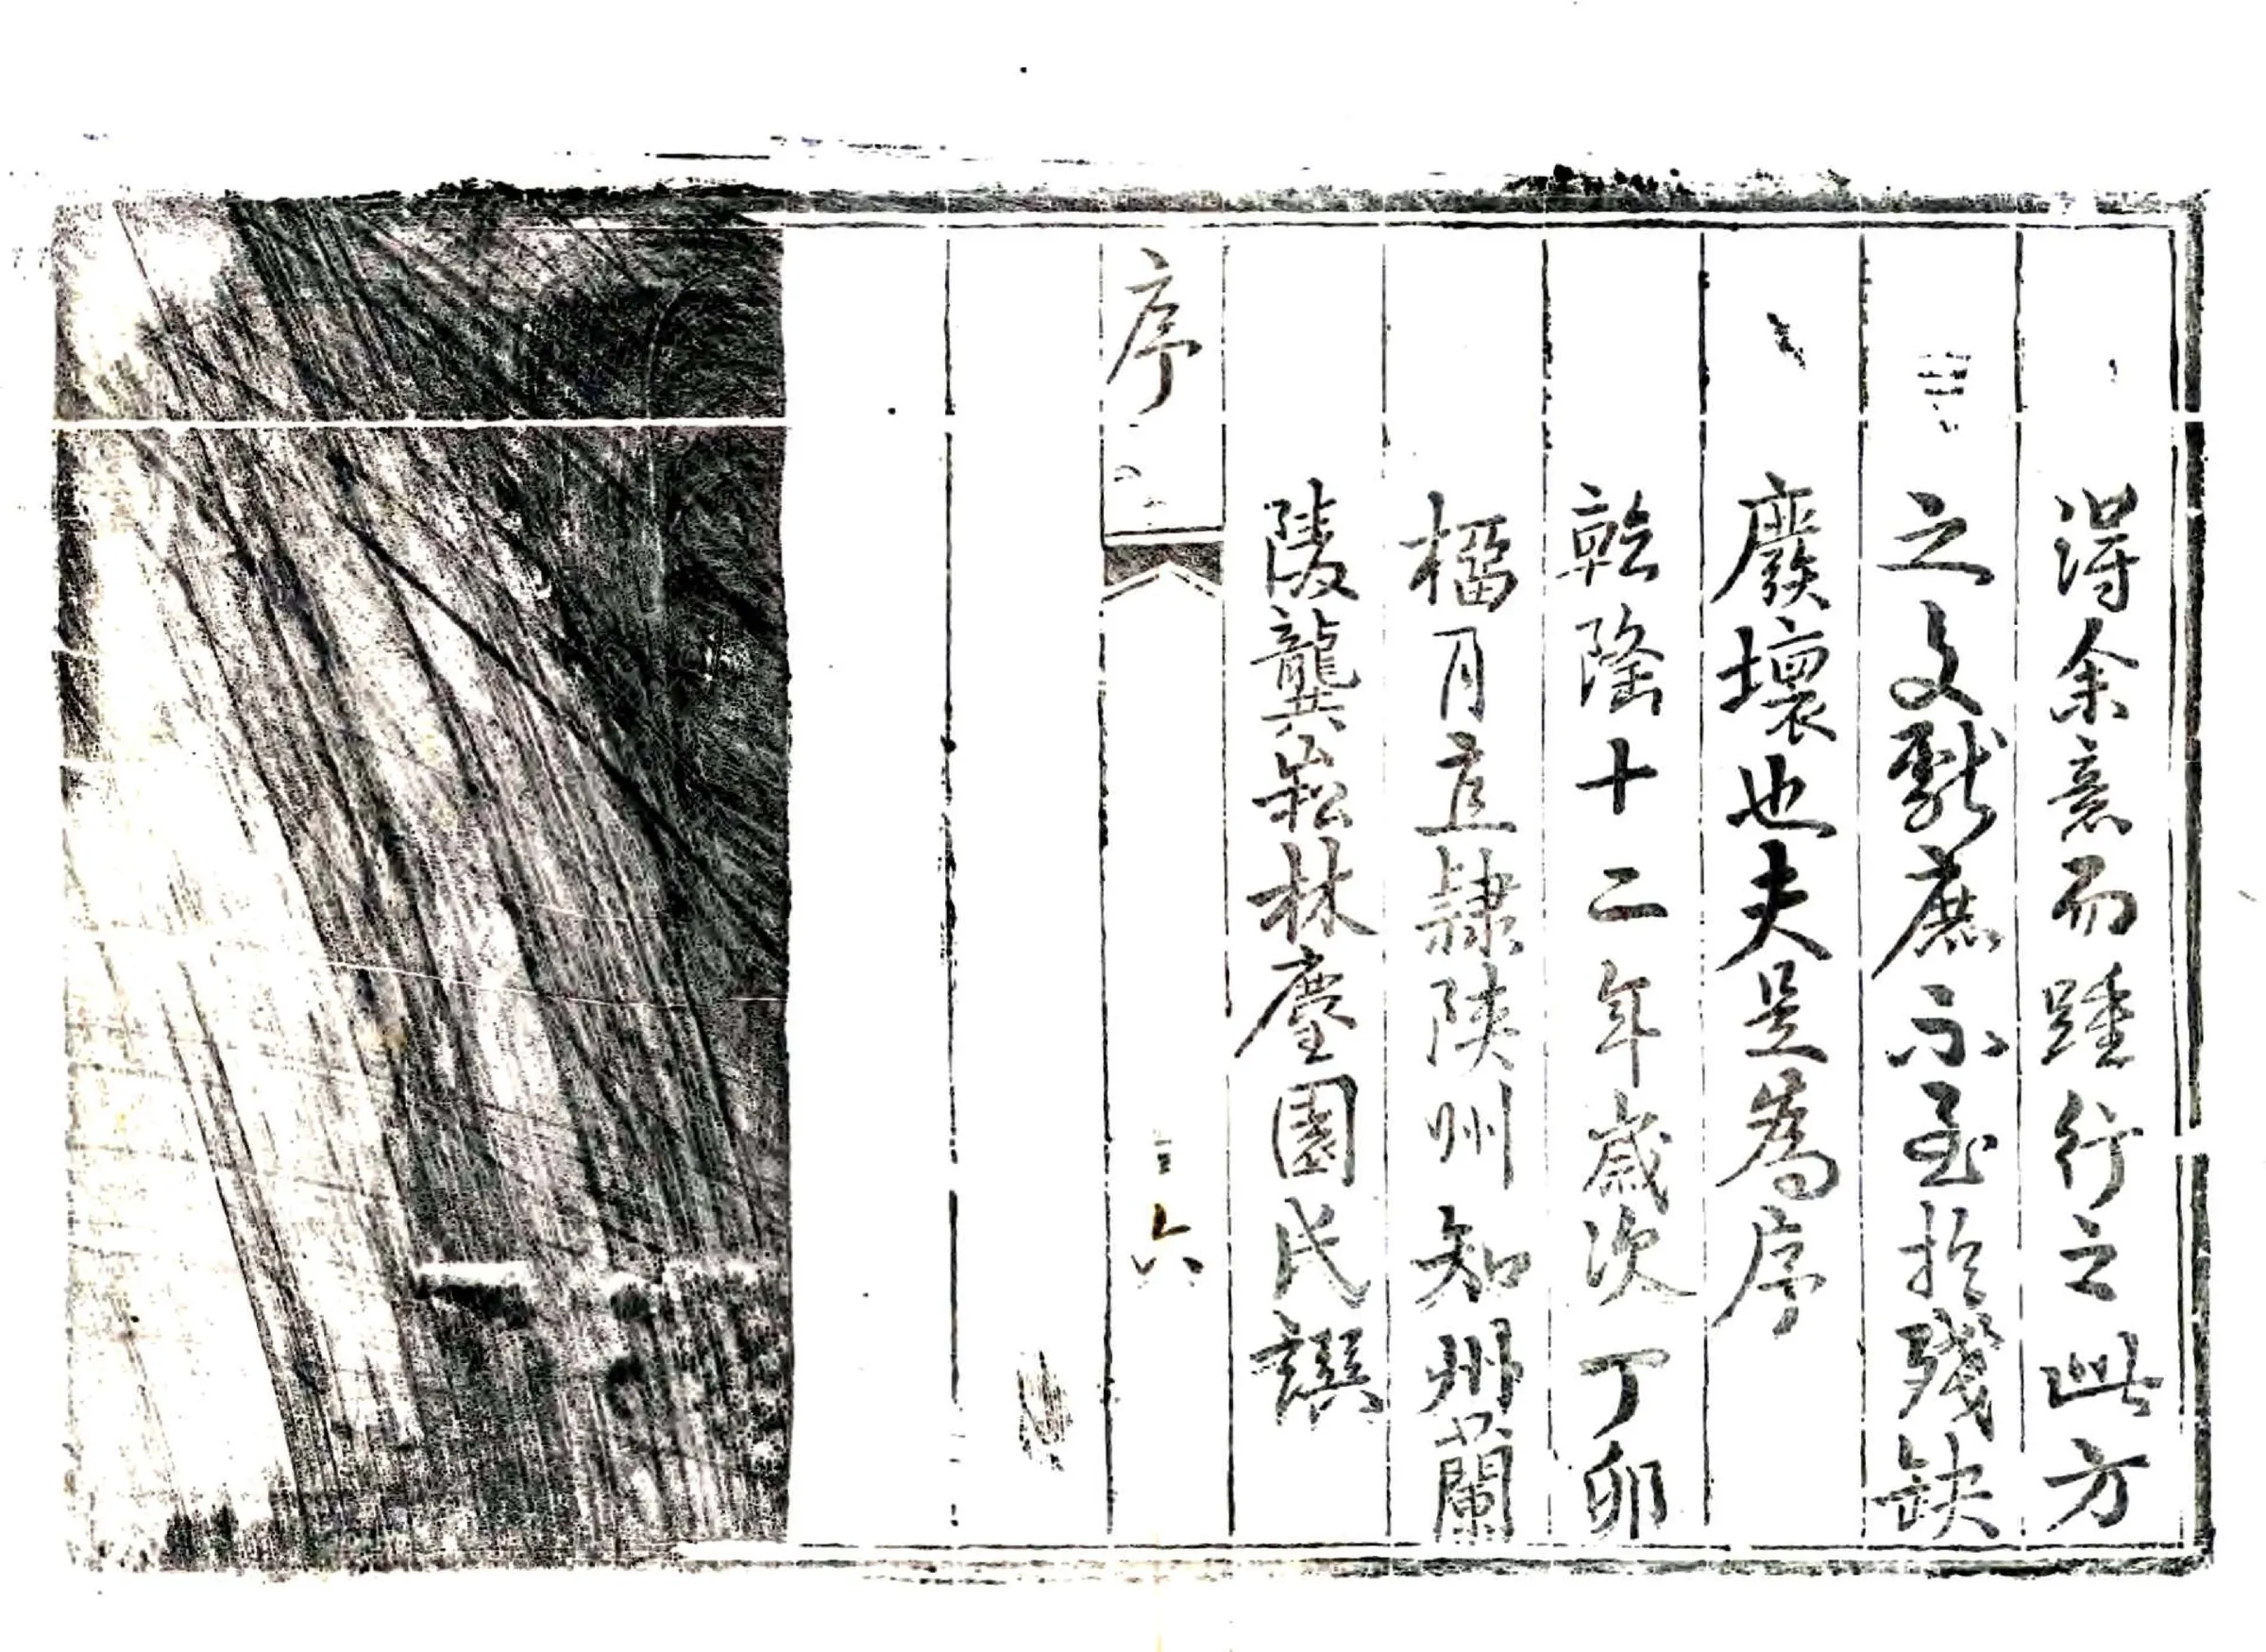 得余意而踵行之此方
之文獻庶不至於殘缺
廢壞也夫是為序
乾隆十二年歲次丁卯
榴月直隸陝州知州蘭
陵龔崧林麈園氏譔
序
六